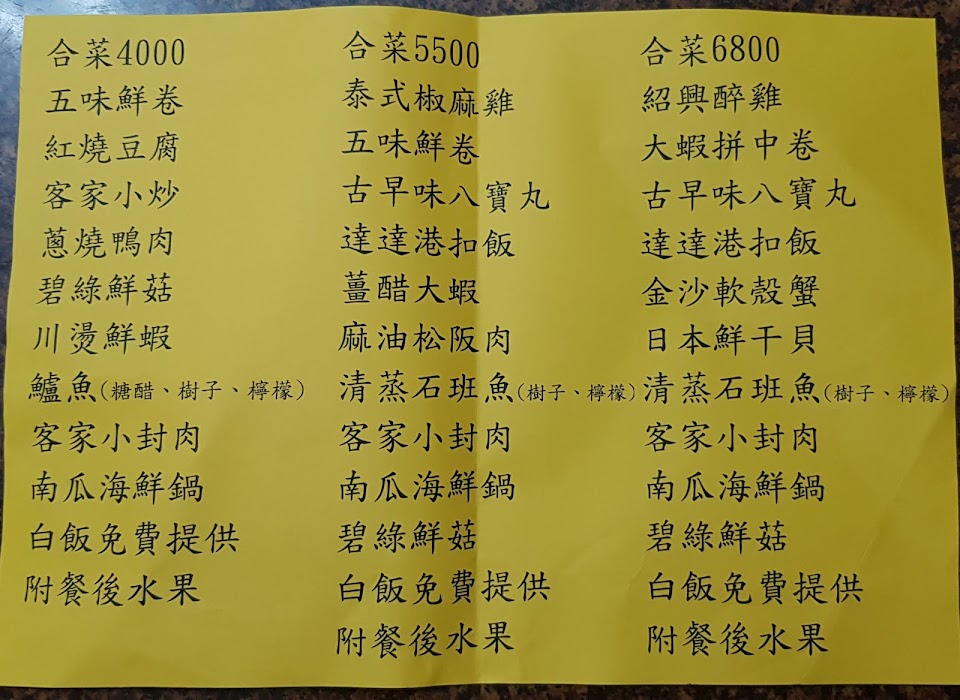 合菜4000
五味鮮卷
紅燒豆腐
客家小炒
蔥燒鴨肉
碧綠鮮菇
川燙鮮蝦
鱸魚(糖醋、樹子、檸檬)
客家小封肉
南瓜海鮮鍋
白飯免費提供
附餐後水果
合菜5500
泰式椒麻雞
五味鮮卷
古早味八寶丸
達達港扣飯
薑醋大蝦
麻油松阪肉
清蒸石班魚(樹子、檸檬)
客家小封肉
南瓜海鮮鍋
碧綠鮮菇
白飯免費提供
附餐後水果
合菜6800
紹興醉雞
大蝦拼中卷
古早味八寶丸
達達港扣飯
金沙軟殼蟹
日本鮮干貝
清蒸石班魚(樹子、檸檬)
客家小封肉
南瓜海鮮鍋
碧綠鮮菇
白飯免費提供
附餐後水果